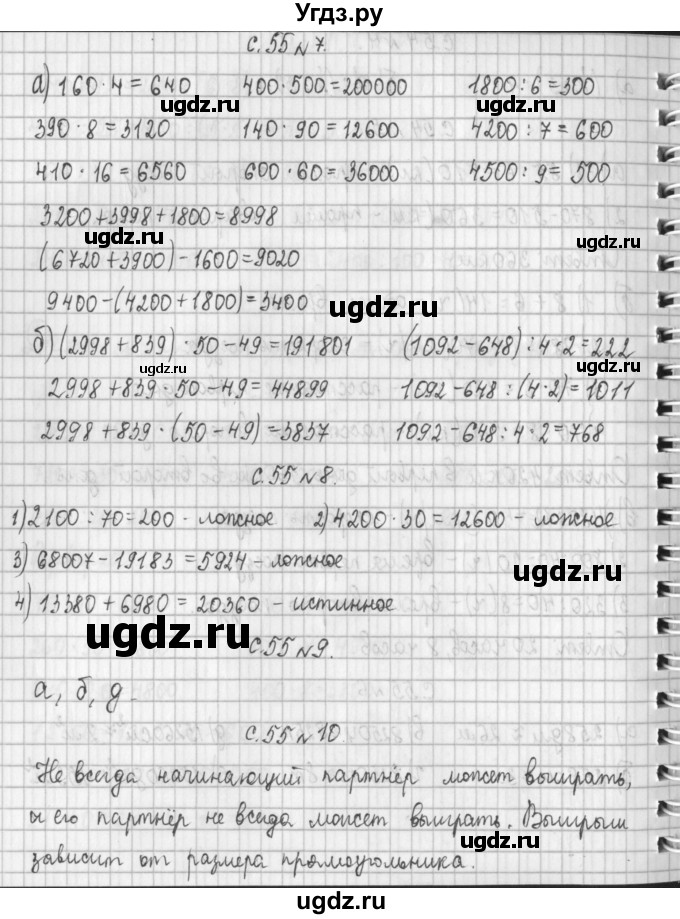 Угдз.ру
с.55 №7.
а) 160·4=640 400·500=200000 1800:6=300
ugdz.ru ugdz.ru ugdz.ru
390·8=3120 140·90=12600 4200:7=600
410·16=6560 600·60=36000 4500:9=500
3200+3998+1800=8998
ugdz.ru ugdz.ru
(6720+3900)-1600=9020
9400-(4200+1800)=3400
ugdz.ru
б) (2998+839)·50-49=191801 (1092-648):4·2=222
ugdz.ru ugdz.ru
2998+839·50-49=44899 1092-648:(4·2)=1011
2998+839·(50-49)=3837 1092-648:4·2=768
с.55 №8.
ugdz.ru
1) 2100:70=200 - ложное 2) 4200·30=12600 - ложное
ugdz.ru
3) 68007-19183=5924 - ложное
ugdz.ru
4) 13380+6980=20360 - истинное
ugdz.ru
с.55 №9.
ugdz.ru
а, б, д.
с.55 №10.
ugdz.ru
Не всегда начинающий партнёр может выиграть,
и его партнёр не всегда может выиграть. Выигрыш
ugdz.ru
зависит от размера прямоугольника.
ugdz.ru